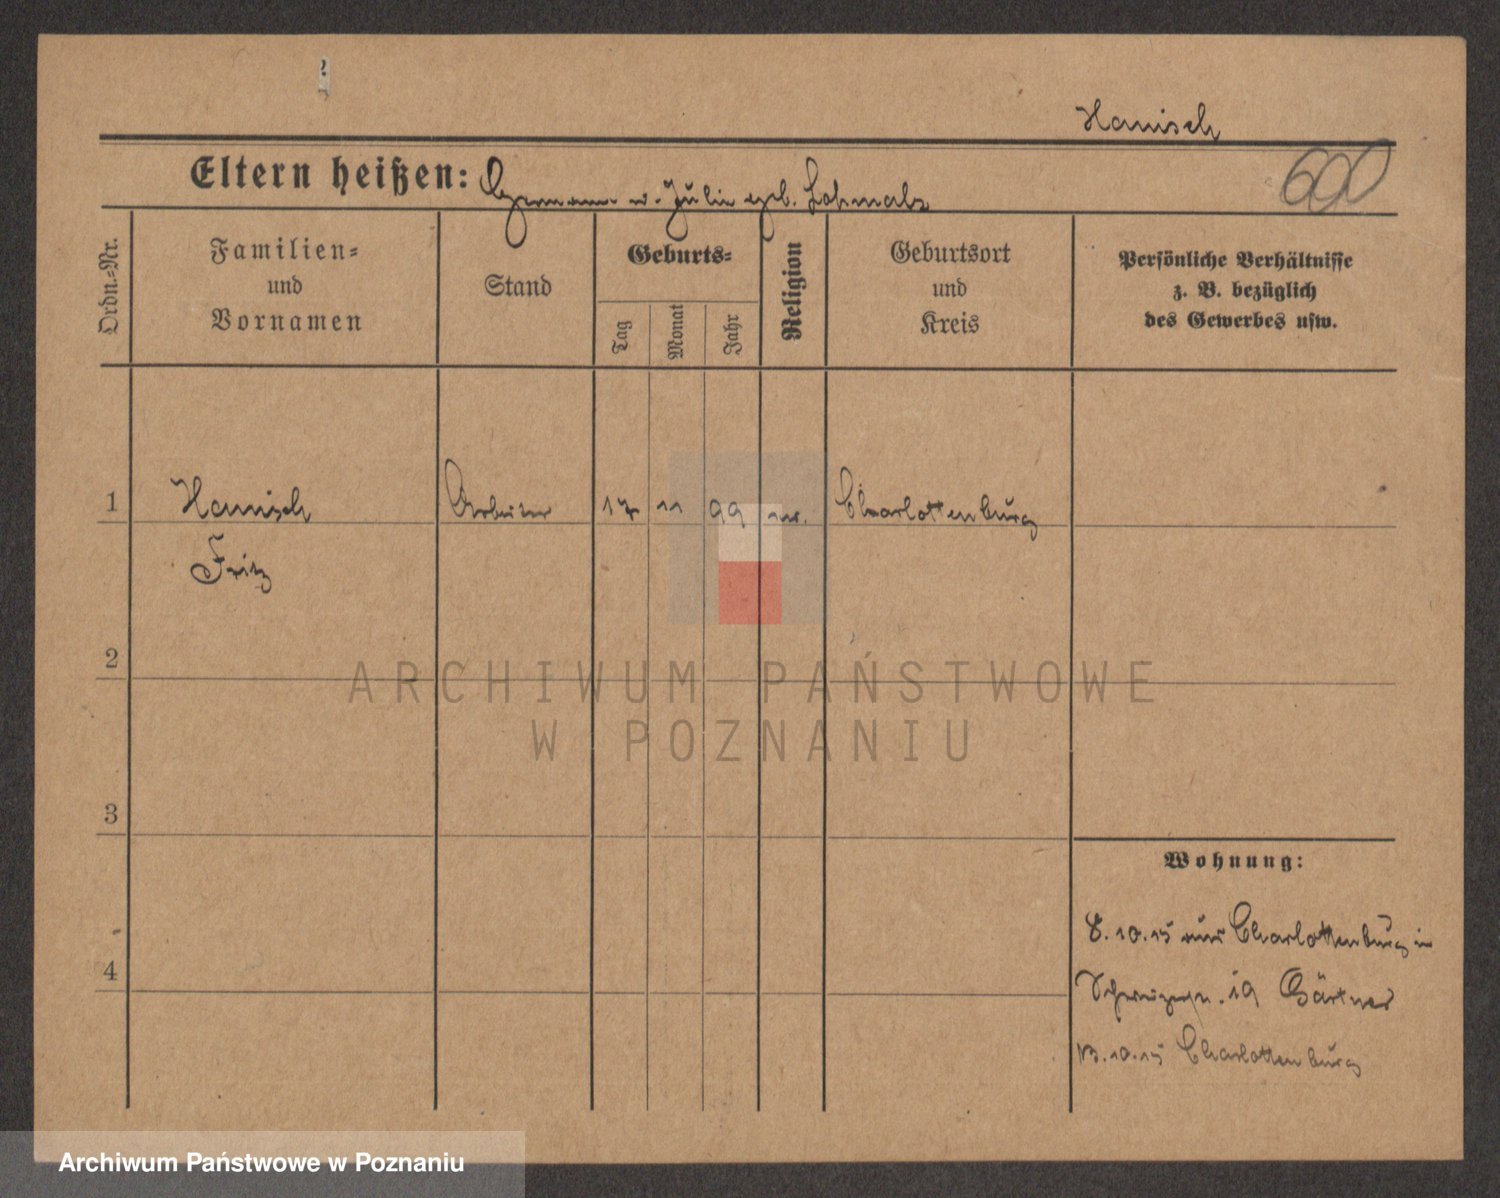 ?
Hanisch
600
Eltern heißen: Hermann u. Julie geb.
Ordn.-Nr.
Familien-
und
Vornamen
Stand
Geburts-
Tag
Monat
Jahr
Religion
Geburtsort
und
Kreis
Persönliche Verhältnisse
z. B. bezüglich
des Gewerbes usw.
1 Hanisch Arbeiter 17 11 99 ev. Charlottenburg
Fritz
2
ARCHIWUM PAŃSTWOWE
W POZNANIU
3
Wohnung:
8.10.15 aus Charlottenburg in
19 Gärtner
4
13.10.15 Charlottenburg
Archiwum Państwowe w Poznaniu